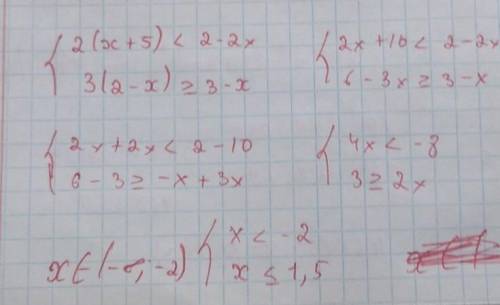 2(x+5) < 2-2x
3(2-x) ≥ 3-x
2x+10 < 2-2x
6-3x ≥ 3-x
2x+2x < 2-10
6-3 ≥ -x+3x
4x < -8
3 ≥ 2x
x < -2
x ≤ 1,5
x∈(-∞; -2)